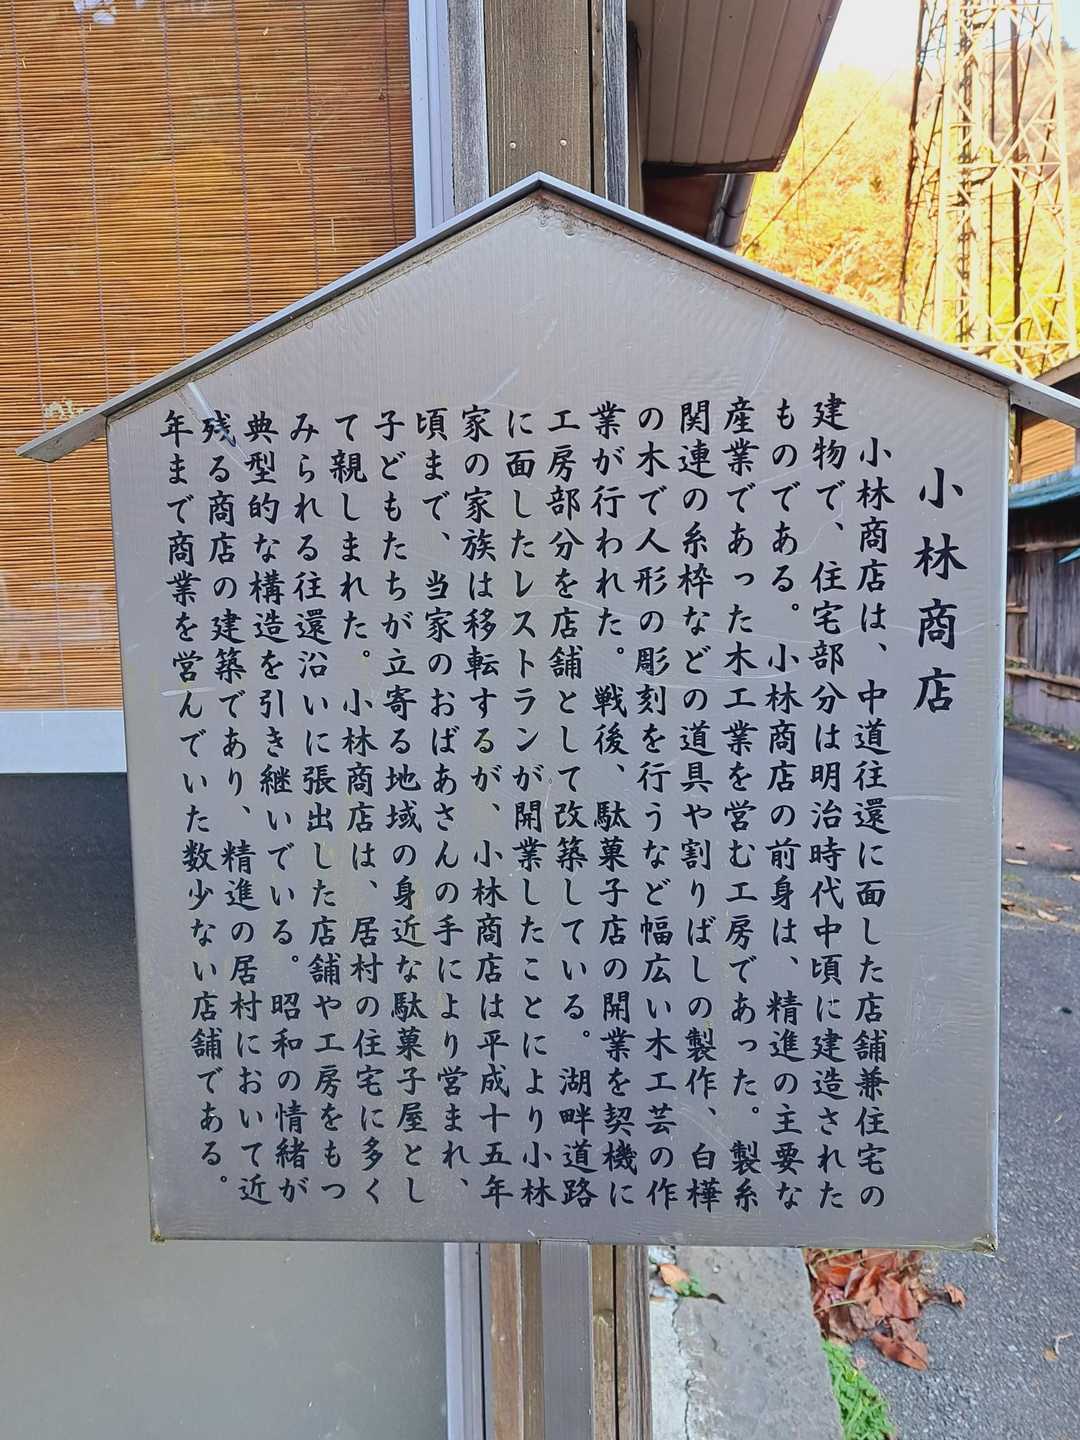 小林商店
小林商店は、中道往還に面した店舗兼住宅の
建物で、住宅部分は明治時代中頃に建造された
ものである。小林商店の前身は、精進の主要な
産業であった木工業を営む工房であった。製糸
関連の糸枠などの道具や割りばしの製作、白樺
の木で人形の彫刻を行うなど幅広い木工芸の作
業が行われた。戦後、駄菓子店の開業を契機に
工房部分を店舗として改築している。湖畔道路
に面したレストランが開業したことにより小林
家の家族は移転するが、小林商店は平成十五年
頃まで、当家のおばあさんの手により営まれ、
子どもたちが立寄る地域の身近な駄菓子屋とし
て親しまれた。小林商店は、居村の住宅に多く
みられる往還沿いに張出した店舗や工房をもつ
典型的な構造を引き継いでいる。昭和の情緒が
残る商店の建築であり、精進の居村において近
年まで商業を営んでいた数少ない店舗である。